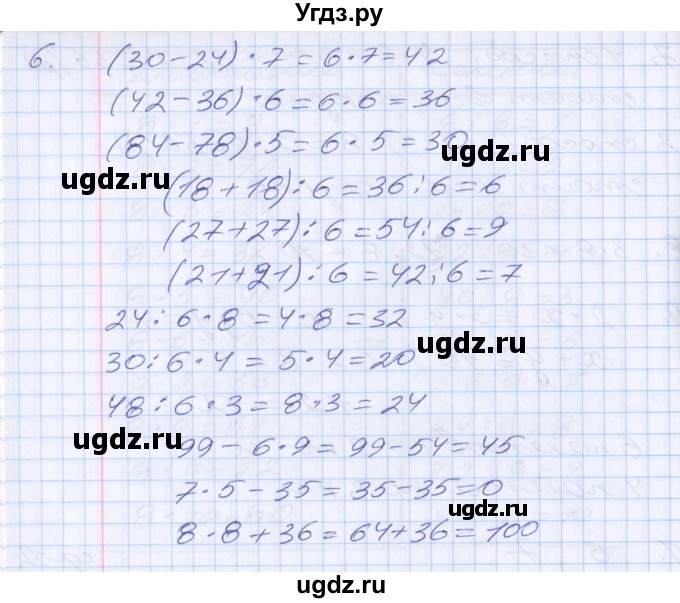 Угдз.ру
6. (30-24)·7=6·7=42
(42-36)·6=6·6=36
(84-78)·5=6·5=30
ugdz.ru ugdz.ru
(18+18):6=36:6=6
(27+27):6=54:6=9
(21+21):6=42:6=7
24:6·8=4·8=32
ugdz.ru
30:6·4=5·4=20
48:6·3=8·3=24
ugdz.ru
99-6·9=99-54=45
7·5-35=35-35=0
ugdz.ru
8·8+36=64+36=100
ugdz.ru